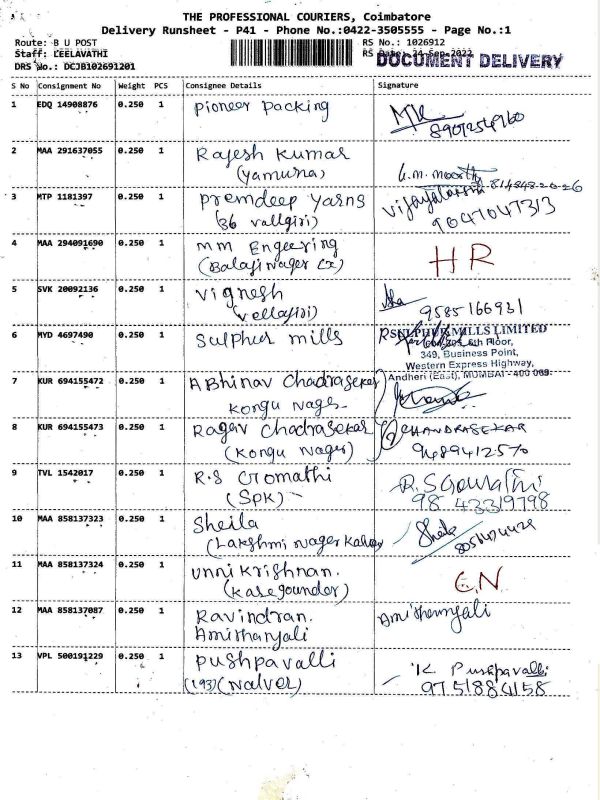 THE PROFESSIONAL COURIERS, Coimbatore
Delivery Runsheet - P41 - Phone No.:0422-3505555 - Page No.:1
Route: B U POST
RS No.: 1026912
Staff: LEELAVATHI
RS Date: 24-Sep-2022
DOCUMENT DELIVERY
DRS No.: DCJB102691201
S No Consignment No Weight PCS Consignee Details Signature
1 EDQ 14908876 0.250 1 Pioneer Packing
2 MAA 291637055 0.250 1 Rajesh Kumar
(Yamuna)
3 MTP 1181397 0.250 1 Premdeep Yarns
(36 Vallgiri)
9047047313
4 MAA 294091690 0.250 1 MM Engeering
(Balaji Nager Ex)
HR
5 SVK 20092136 0.250 1 Vignesh
(Vellagiri)
9585166931
6 MYD 4697490 0.250 1 Sulphur mills
SULPHUR MILLS LIMITED
6th Floor,
349, Business Point,
Western Express Highway,
Andheri (East), MUMBAI - 400 069.
7 KUR 694155472 0.250 1 ABhinav Chadrasekar
Kongu Nager
8 KUR 694155473 0.250 1 Ragav Chadrasekar
(Kongu Nager)
CHANDRASEKAR
9489412570
9 TVL 1542017 0.250 1 R.S Gomathi
(SPK)
R.S Gomathi
98 43319798
10 MAA 858137323 0.250 1 Sheila
(Lakshmi Nager
Sheila
11 MAA 858137324 0.250 1 Unni Krishnan.
(Karegounder)
12 MAA 858137087 0.250 1 Ravindran.
Amithanjali
13 VPL 500191229 0.250 1 Pushpavalli
(193) (Nalver)
K. Pushpavalli
9751884158